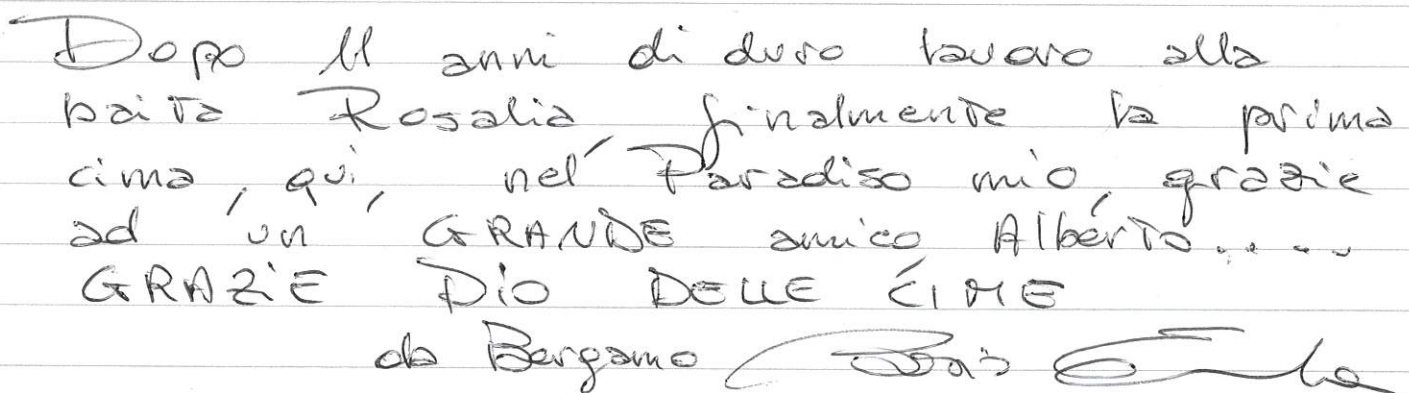 Dopo 11 anni di duro lavoro alla
baita Rosalia, finalmente la prima
cima, qui, nel Paradiso mio, grazie
ad un GRANDE amico Alberto.....
GRAZiE DiO DELLE CIME
da Bergamo